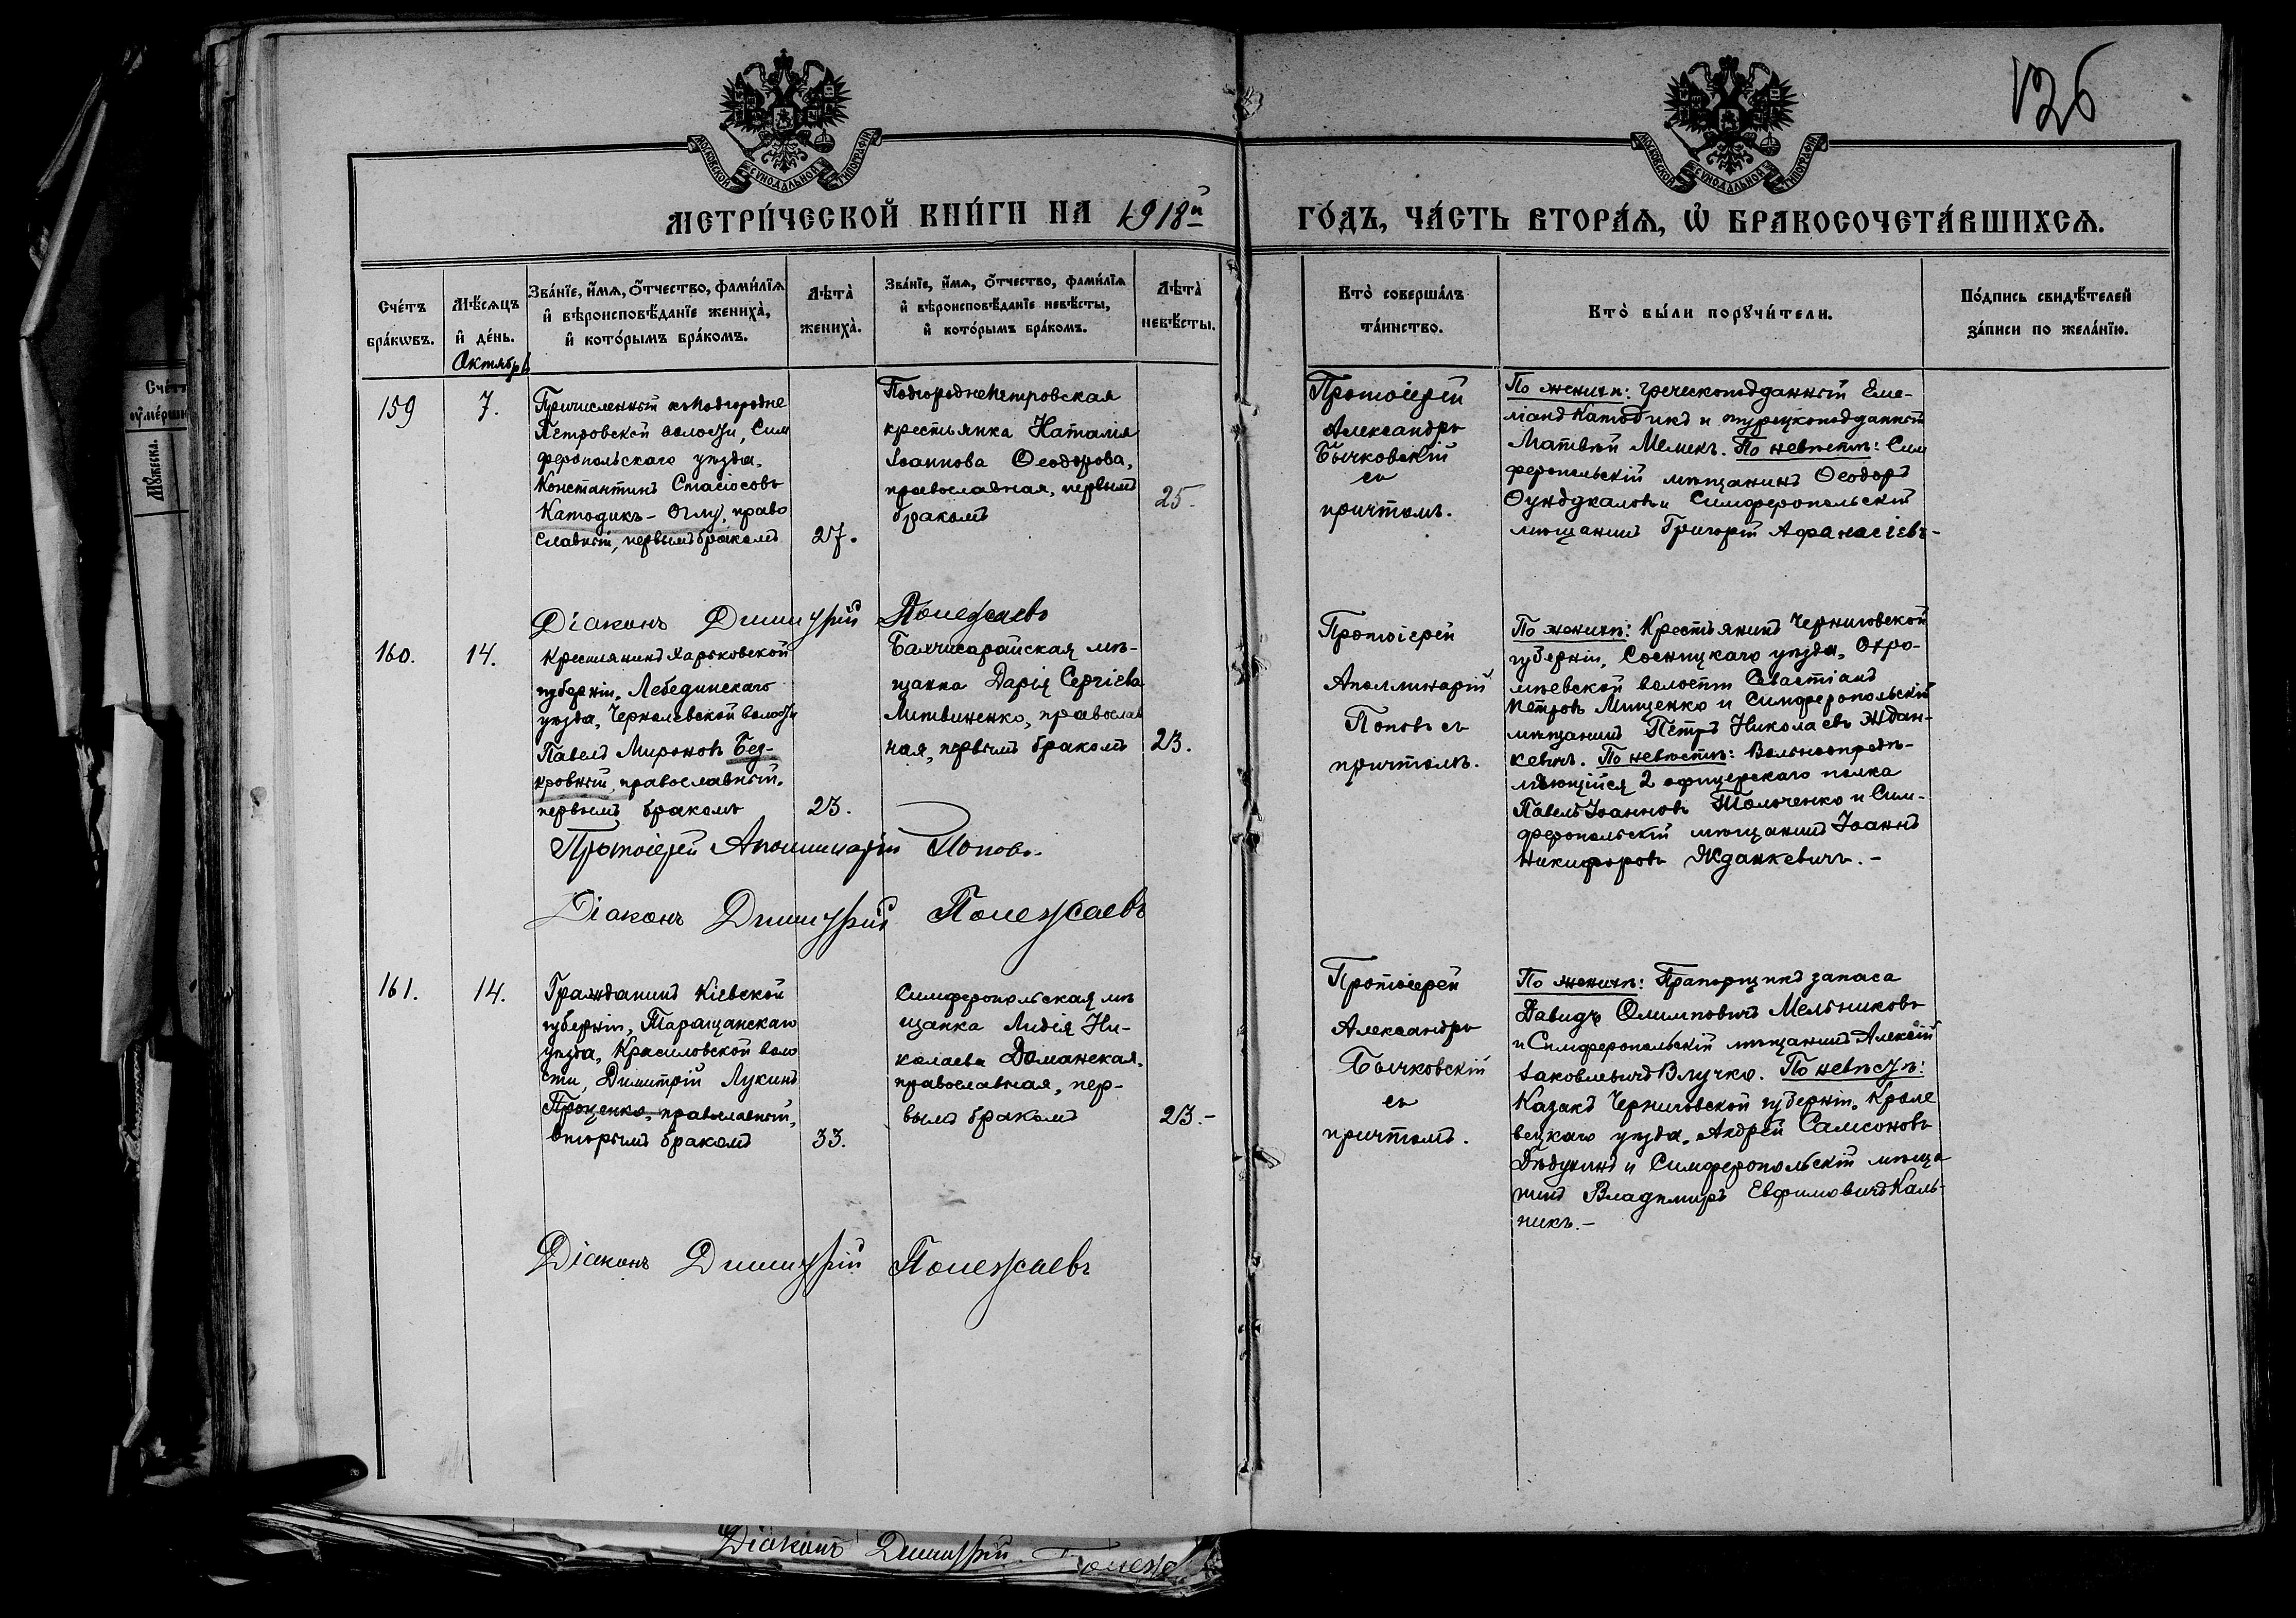 126
МОСКОВСКОЙ СѴНОДАЛЬНОЙ ТИПОГРАФІИ
МОСКОВСКОЙ СѴНОДАЛЬНОЙ ТИПОГРАФІИ
МЕТРИ́ЧЕСКОЙ КНИ́ГИ НА 1918й ГО́ДЪ, ЧА́СТЬ ВТОРА́Ѧ, Ѽ БРАКОСОЧЕТА́ВШИХСѦ.
Сче́тъ
бра́кѡвъ.
Мѣ́сѧцъ
и҆ де́нь.
Октябрь
Зва́нїе, и҆́мѧ, ѻ҆́тчество, фами́лїѧ
и҆ вѣроисповѣ́данїе жениха̀,
и҆ кото́рымъ бра́комъ.
Лѣта̀
жениха̀.
Зва́нїе, и҆́мѧ, ѻ҆́тчество, фами́лїѧ
и҆ вѣроисповѣ́данїе невѣ́сты,
и҆ кото́рымъ бра́комъ.
Лѣта̀
невѣ́сты.
Кто̀ соверша́лъ
та́инство.
Кто̀ бы́ли порꙋчи́тели.
По́дпись свидѣ́телей
за́писи по жела́нїю.
159
7.
Причисленный къ Подгородне
Петровской волости, Сим
феропольскаго уѣзда,
Константинъ Стасіосовъ
Катодикъ-Оглу, право
славный, первымъ бракомъ
27.
Подгородне Петровская
крестьянка Наталія
Іоаннова Ѳеодорова,
православная, первымъ
бракомъ
25.
Протоіерей
Александръ
Бычковскій
съ
причтомъ.
По женихѣ: греческоподданный Еме-
ліанъ Катодикъ и турецкоподданный
Матвѣй Мемекъ. По невѣстѣ: Сим
феропольскій мѣщанинъ Ѳеодоръ
Ѳундукаловъ и Симферопольскій
мѣщанинъ Григорій Афанасіевъ-
Діаконъ Димитрій Полежаевъ
160.
14.
Крестьянинъ Харьковской
губерніи, Лебединскаго
уѣзда, Чернолевской волости
Павелъ Мироновъ Без-
кровный, православный,
первымъ бракомъ
23.
Бахчисарайская мѣ-
щанка Дарія Сергіева
Литвиненко, православ
ная, первымъ бракомъ
23.
Протоіерей
Аполлинарій
Поповъ съ
причтомъ.
По женихѣ: Крестьянинъ Черниговской
губерніи, Сосницкаго уѣзда, Охро-
мѣевской волости Севастіанъ
Петровъ Мищенко и Симферопольскій
мѣщанинъ Петръ Николаевъ Ждан-
кевичъ. По невѣстѣ: Вольноопредѣ-
ляющійся 2 офицерскаго полка
Павелъ Іоанновъ Толоченко и Сим-
феропольскій мѣщанинъ Іоаннъ
Никифоровъ Жданкевичъ.-
Протоіерей Аполлинарій Поповъ
Діаконъ Димитрій Полежаевъ
161.
14.
Гражданинъ Кіевской
губерніи, Таращанскаго
уѣзда, Красиловской воло
сти, Димитрій Лукинъ
Проценко, православный,
вторымъ бракомъ
33.
Симферопольская мѣ
щанка Лидія Ни-
колаева Доманская,
православная, пер-
вымъ бракомъ
23.-
Протоіерей
Александръ
Бычковскій
съ
причтомъ.
По женихѣ: Прапорщикъ запаса
Давидъ Олимповичъ Мельниковъ
и Симферопольскій мѣщанинъ Алексій
Іаковлевичъ Влучко. По невѣстѣ:
Казакъ Черниговской губерніи, Кроле
вецкаго уѣзда, Андрей Самсоновъ
Дѣдукинъ и Симферопольскій мѣща
нинъ Владимиръ Евфимовичъ Каль-
никъ.-
Діаконъ Димитрій Полежаевъ
Діаконъ Димитрій Полеж
Счетъ
Мꙋ́жеска.